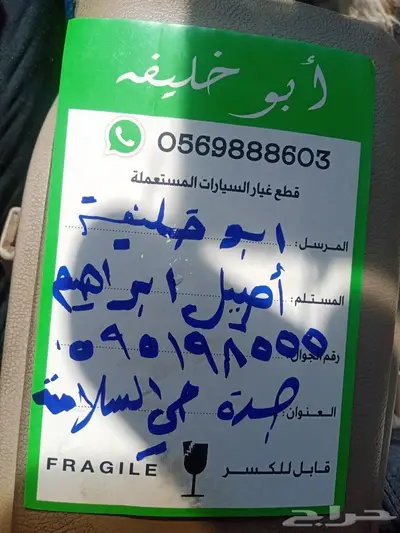 أبو خليفه
0569888603
قطع غيار السيارات المستعملة
المرسل: ابو خليفة
المستلم: أصيل ابراهيم
رقم الجوال: ٠٥٩٥١٩٨٥٥٥
العنوان: جدة حي السلامة
قابل للكسر FRAGILE
حراج